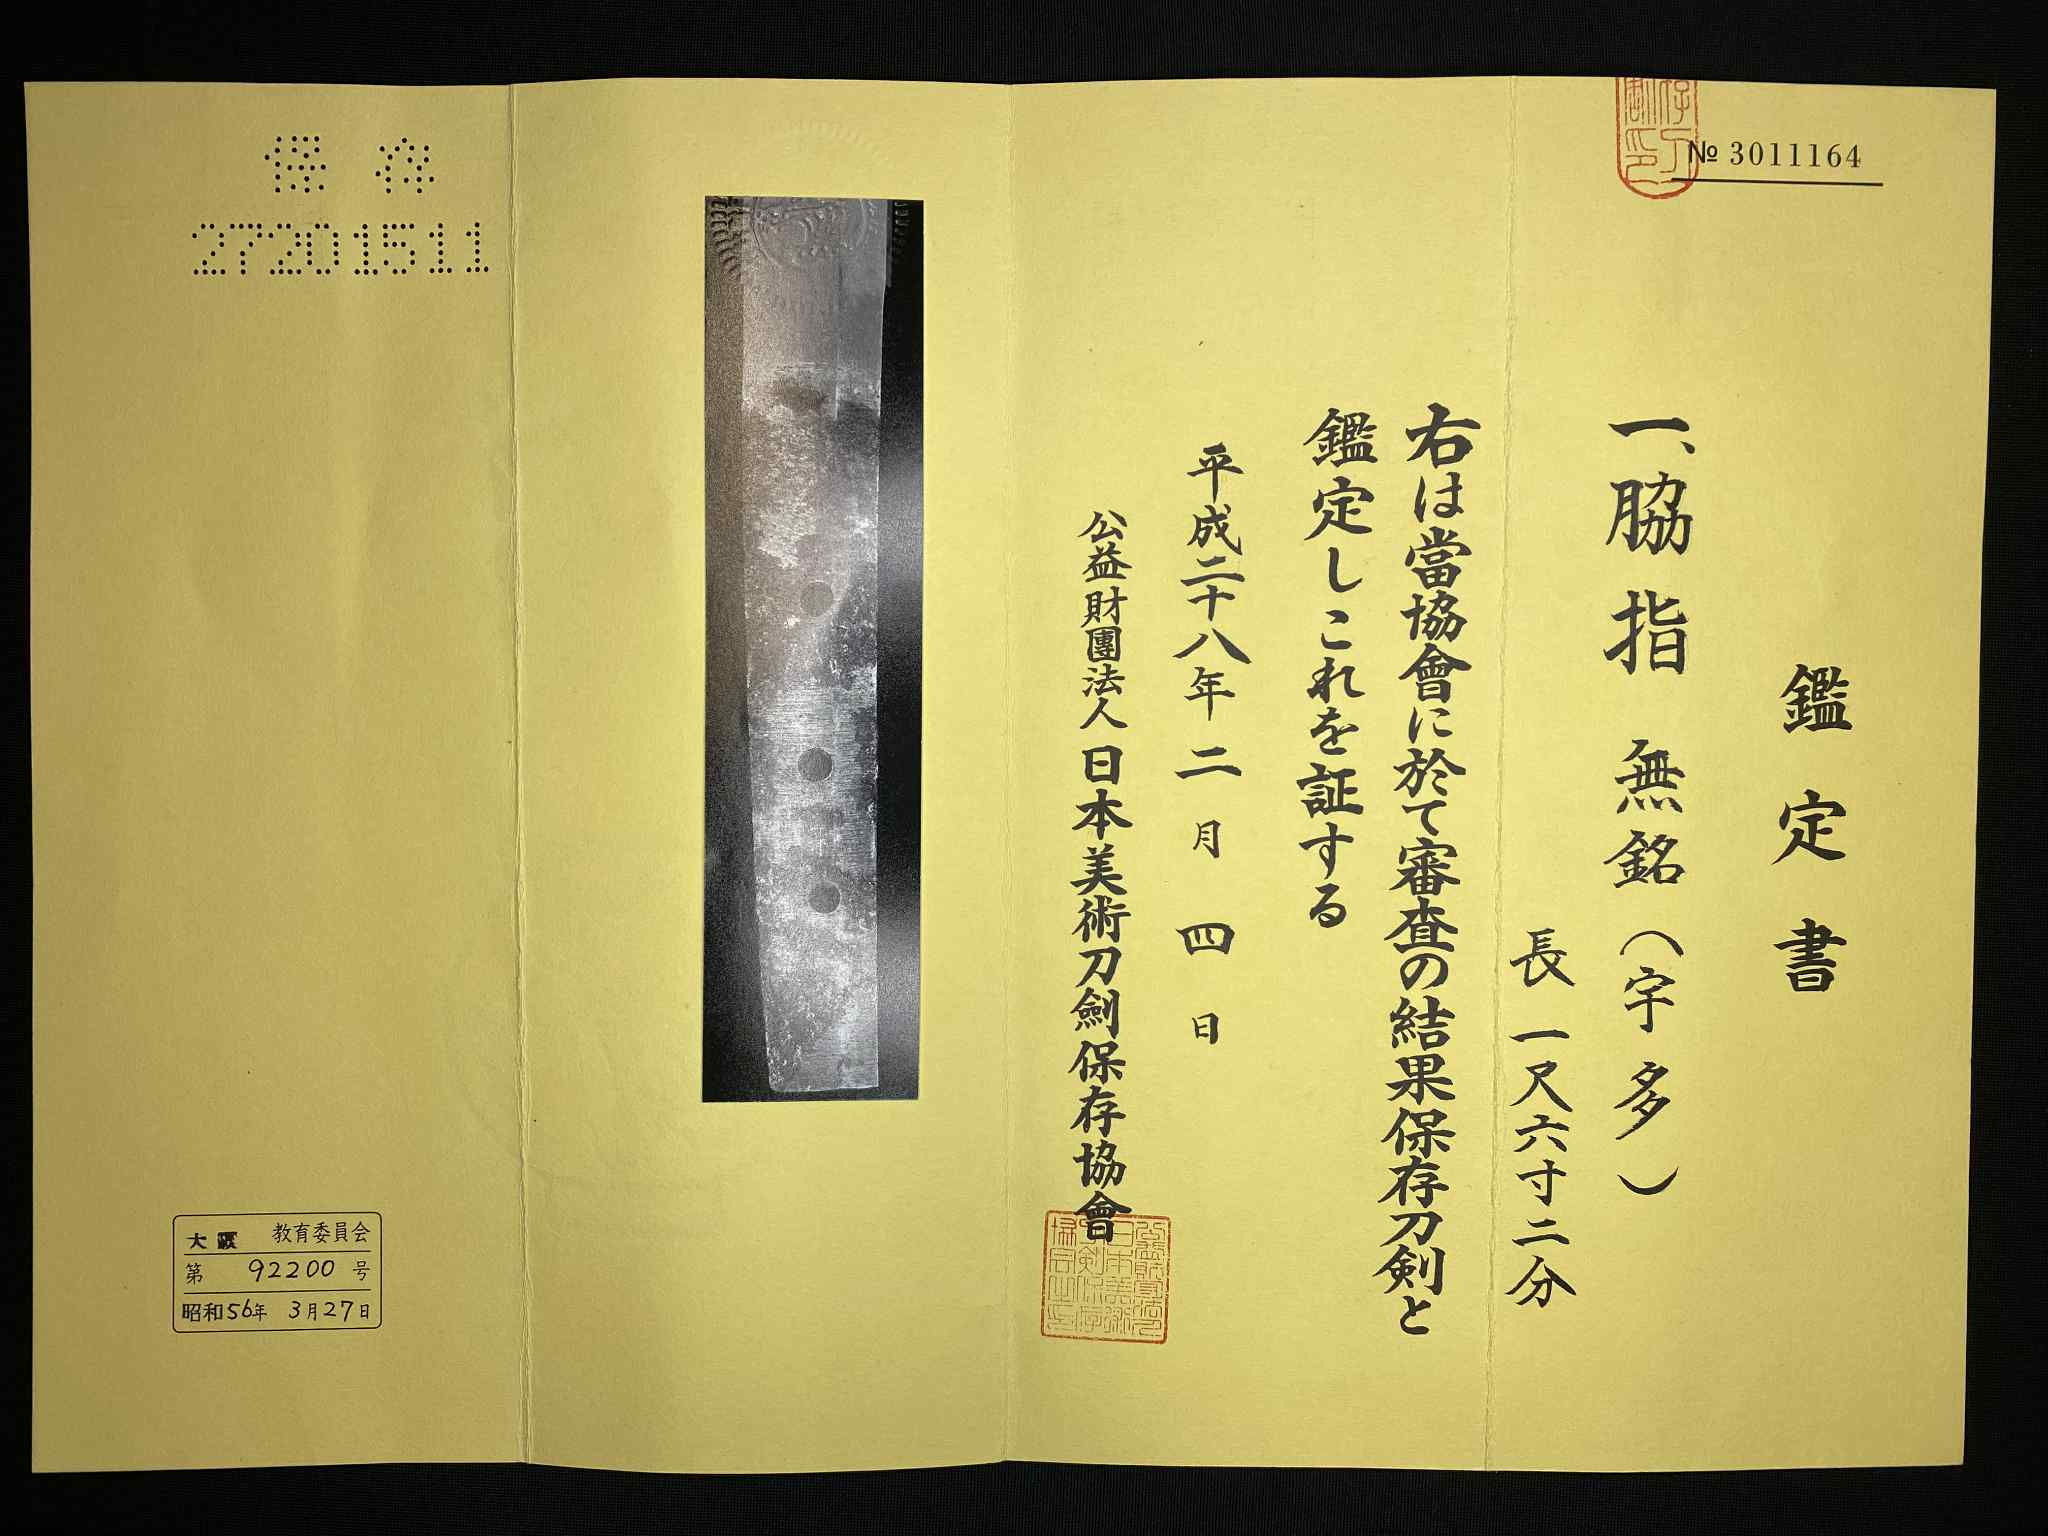 № 3011164
鑑定書
一、脇指 無銘(宇多)
長 一尺六寸二分
右は當協會に於て審査の結果保存刀剣と
鑑定しこれを証する
平成二十八年二月四日
公益財團法人日本美術刀劍保存協會
保存
27201511
大阪 教育委員会
第 92200 号
昭和56年 3月27日